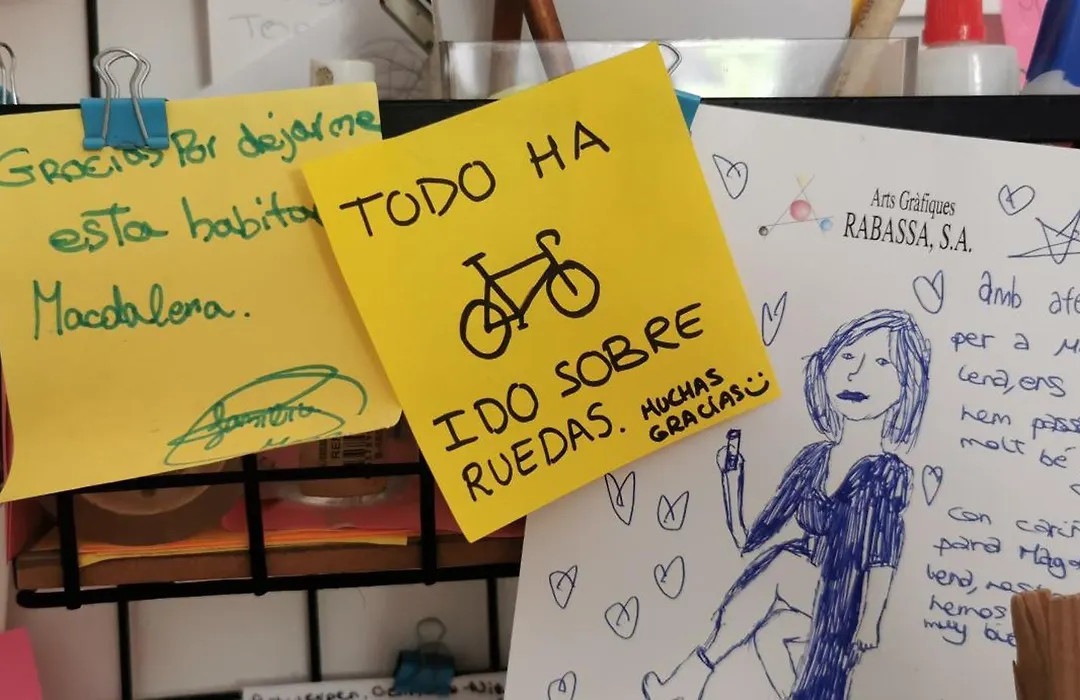 Gracias Por dejarme
esta habita
Macdalena.
TODO HA
IDO SOBRE
RUEDAS. MUCHAS
GRACIAS
Arts Gràfiques
RABASSA, S.A.
amb afe
per a M
lena, ens
hem pass
molt bé
con cariñ
para Mag
lena, nos
hemos
muy bie